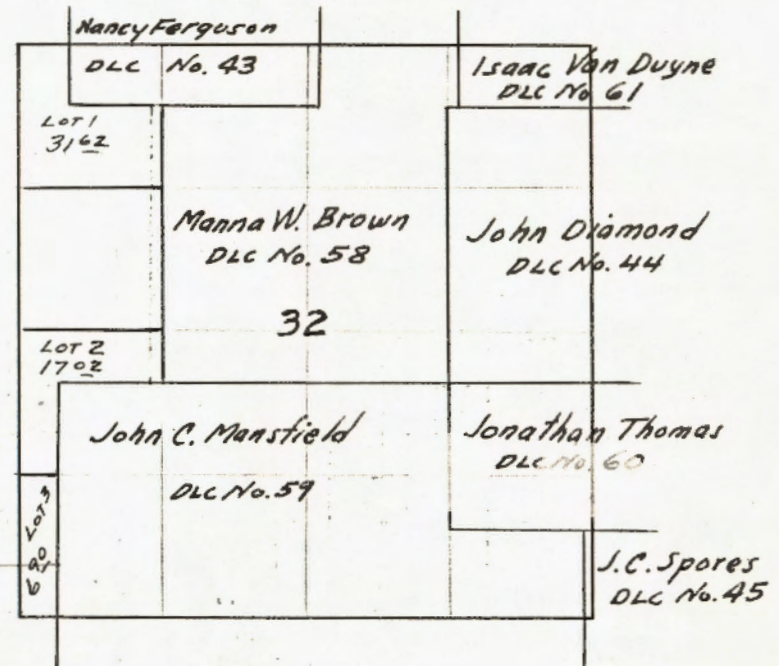 Nancy Ferguson
DLC No. 43
Isaac Van Duyne
DLC No 61
LOT 1
31 62
Manna W. Brown
DLC No. 58
John Diamond
DLC No. 44
32
LOT 2
17 02
John C. Mansfield
DLC No. 59
Jonathan Thomas
DLC No. 60
LOT 3
6 90
J.C. Spores
DLC No. 45